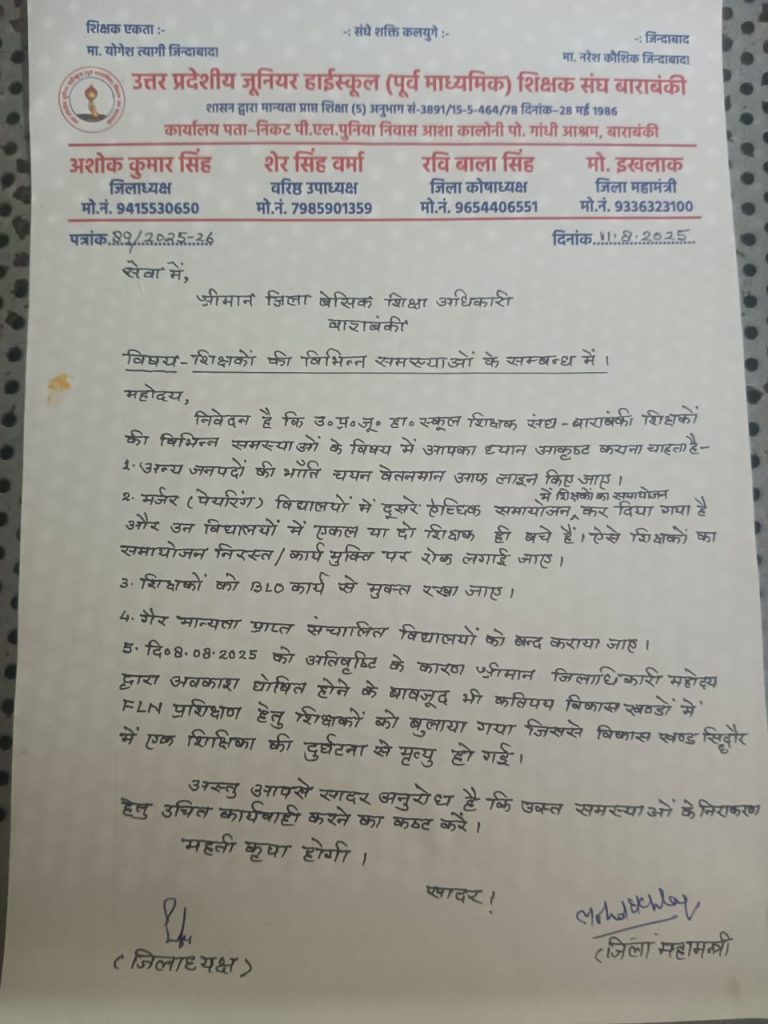 शिक्षक एकता :-
-: संघे शक्ति कलयुगे :-
-: जिन्दाबाद
मा. योगेश त्यागी जिन्दाबाद!
मा. नरेश कौशिक जिन्दाबाद!
उत्तर प्रदेशीय जूनियर हाईस्कूल (पूर्व माध्यमिक) शिक्षक संघ बाराबंकी
शासन द्वारा मान्यता प्राप्त शिक्षा (5) अनुभाग सं-3891/15-5-464/78 दिनांक-28 मई 1986
कार्यालय पता-निकट पी.एल.पुनिया निवास आशा कालोनी पो. गांधी आश्रम, बाराबंकी
अशोक कुमार सिंह शेर सिंह वर्मा रवि बाला सिंह मो. इखलाक
जिलाध्यक्ष वरिष्ठ उपाध्यक्ष जिला कोषाध्यक्ष जिला महामंत्री
मो.नं. 9415530650 मो.नं. 7985901359 मो.नं. 9654406551 मो.नं. 9336323100
पत्रांक.89/2025-26 दिनांक...11.8.2025
सेवा में,
श्रीमान जिला बेसिक शिक्षा अधिकारी
बाराबंकी
विषय - शिक्षकों की विभिन्न समस्याओं के सम्बन्ध में।
महोदय,
निवेदन है कि उ.प्र.जू. हा. स्कूल शिक्षक संघ - बाराबंकी शिक्षकों
की विभिन्न समस्याओं के विषय में आपका ध्यान आकृष्ट कराना चाहता है-
1. अन्य जनपदों की भाँति चयन वेतनमान आफ लाइन किए जाए।
में शिक्षकों का समायोजन
2. मर्जर (पेयरिंग) विद्यालयों में दूसरे ऐच्छिक समायोजन कर दिया गया है
और उन विद्यालयों में एकल या दो शिक्षक ही बचे हैं। ऐसे शिक्षकों का
समायोजन निरस्त/कार्य मुक्ति पर रोक लगाई जाए।
3. शिक्षकों को BLO कार्य से मुक्त रखा जाए।
4. गैर मान्यता प्राप्त संचालित विद्यालयों को बन्द कराया जाए।
5. दि० 8.08.2025 को अतिवृष्टि के कारण श्रीमान जिलाधिकारी महोदय
द्वारा अवकाश घोषित होने के बावजूद भी कतिपय विकास खण्डों में
FLN प्रशिक्षण हेतु शिक्षकों को बुलाया गया जिससे विकास खण्ड सिद्धौर
में एक शिक्षिका की दुर्घटना से मृत्यु हो गई।
अस्तु आपसे सादर अनुरोध है कि उक्त समस्याओं के निराकरण
हेतु उचित कार्यवाही करने का कष्ट करें।
महती कृपा होगी।
सादर!
(जिलाध्यक्ष)
(जिला महामन्त्री